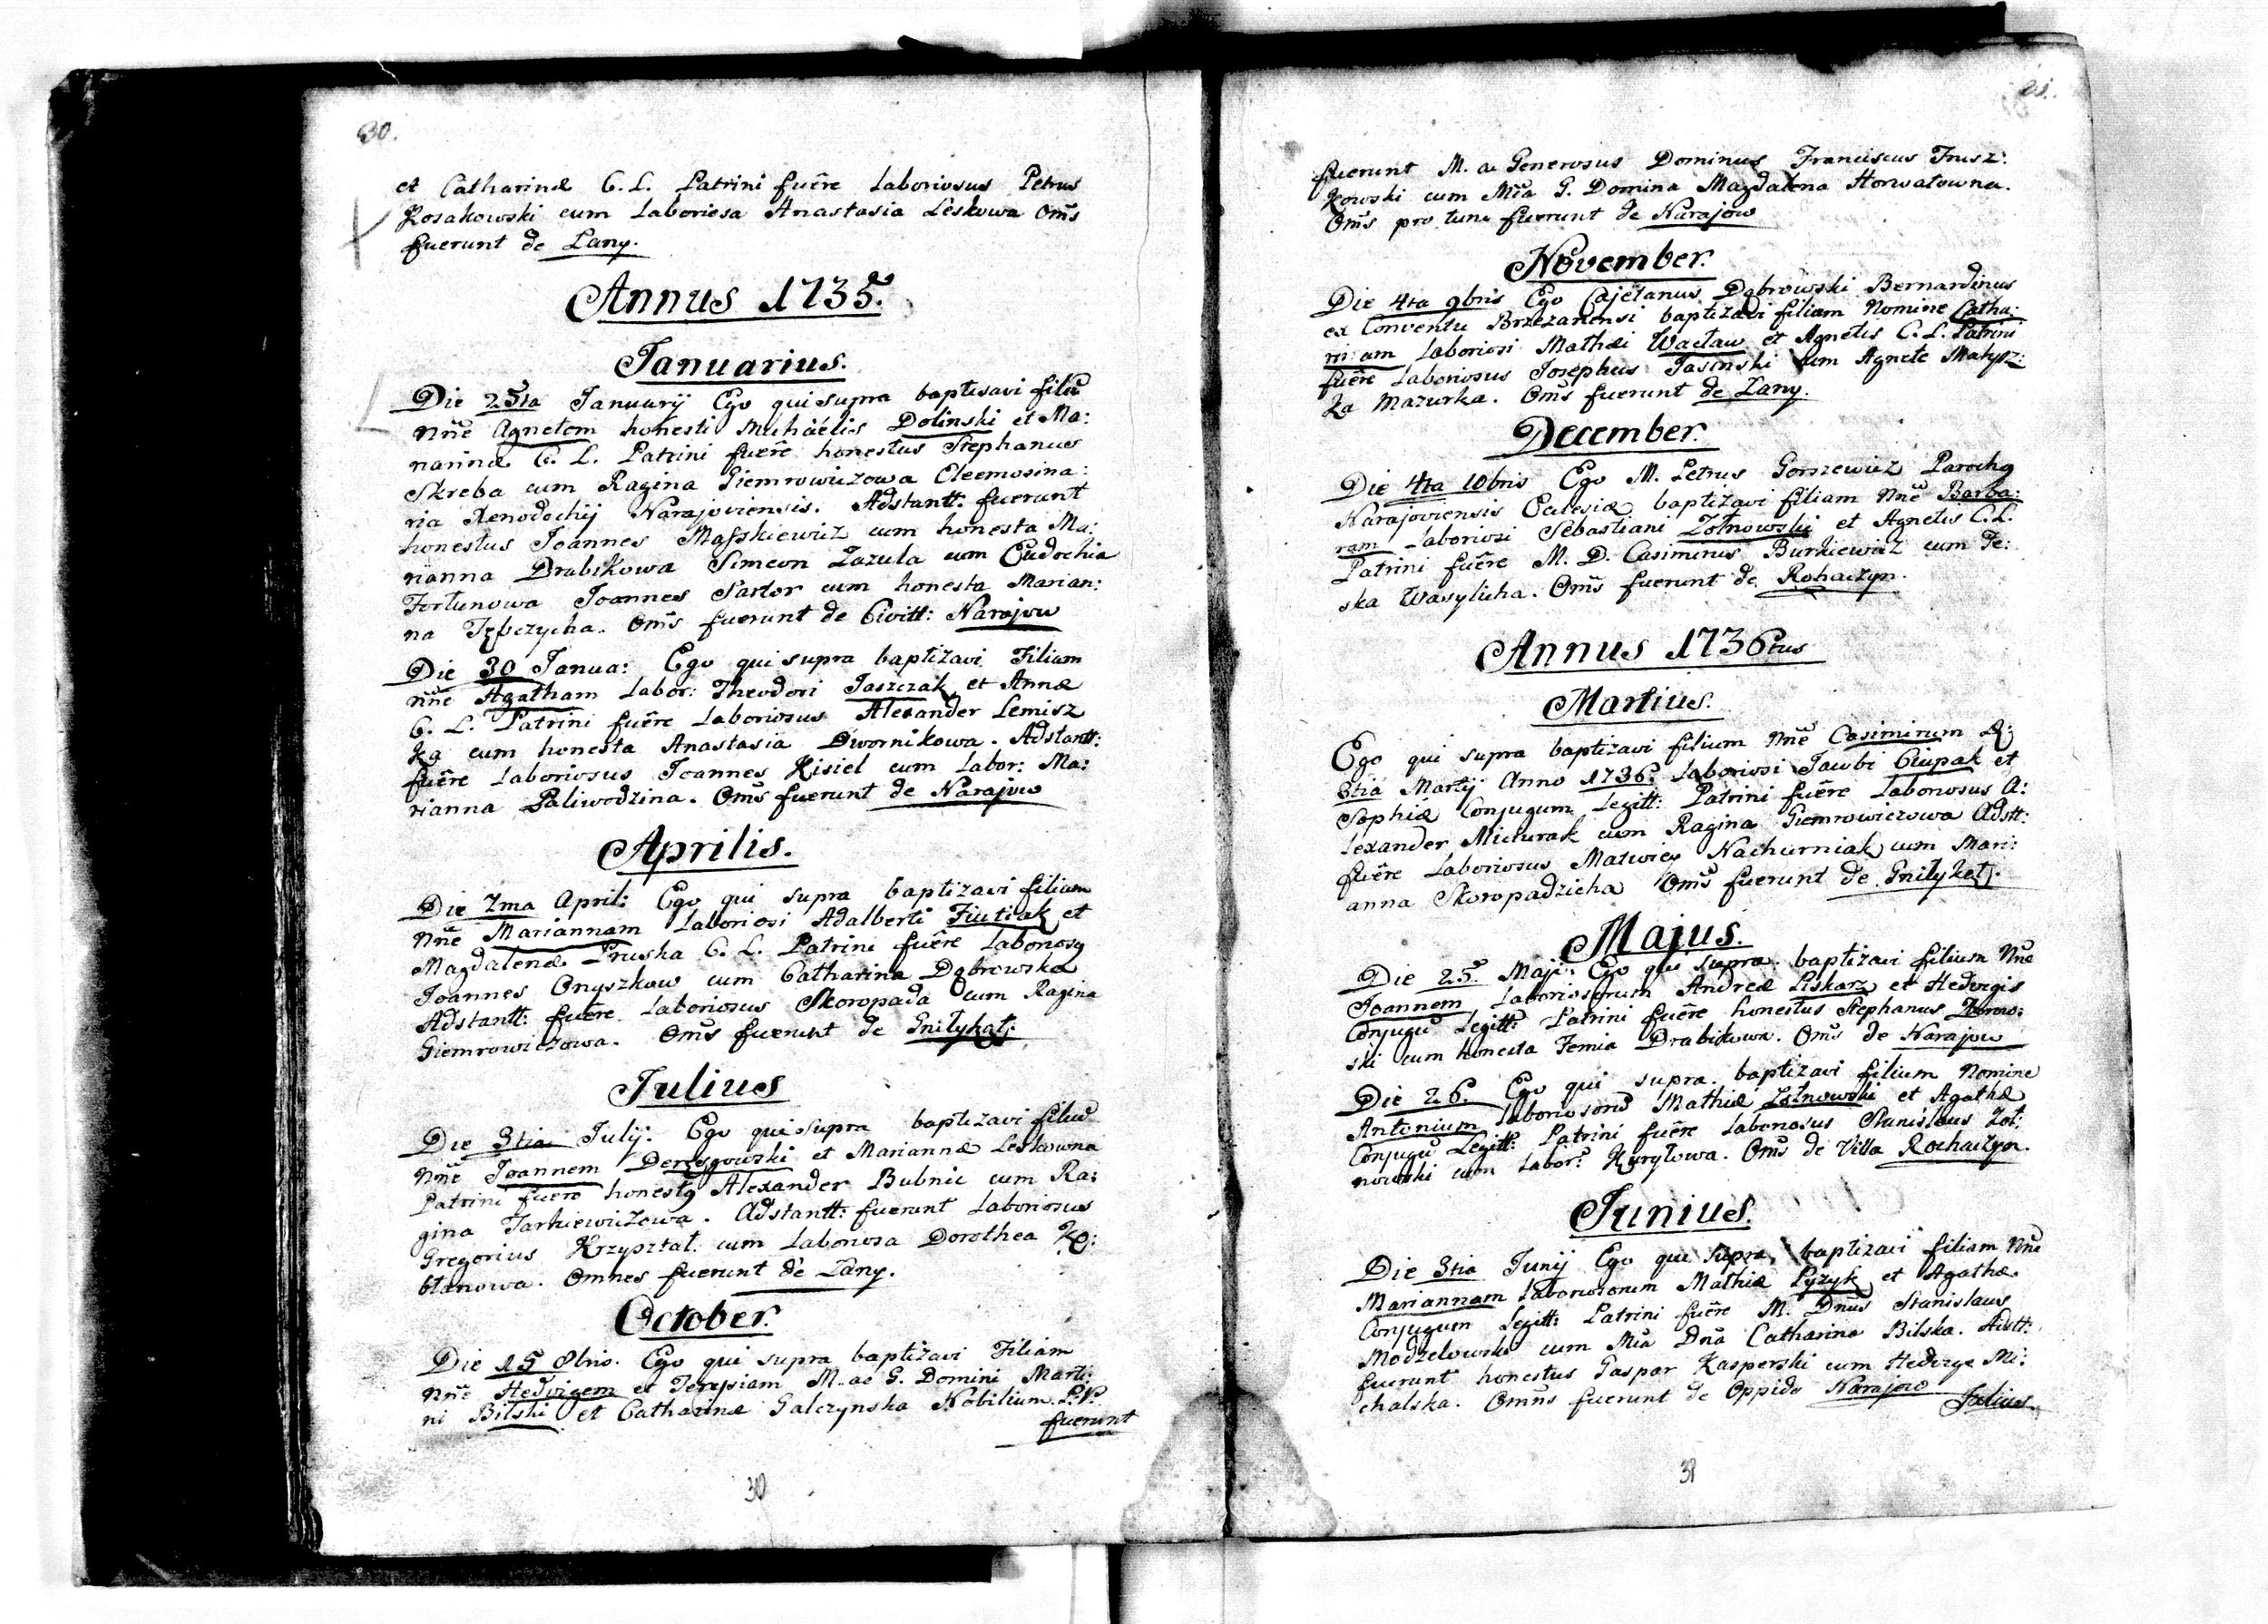 30.
et Catharinæ C. L. Patrini fuêre Laboriosus Petrus
Kosakowski cum Laboriosa Anastasia Leskowa Oms̃
fuerunt de Lany.
Annus 1735.
Januarius.
Die 25ta Januarij Ego qui supra baptisavi filiã
Nñe Agnetem honesti Michaélis Dolinski et Ma:
rianna C. L. Patrini fuêre honestus Stephanus
Skreba cum Ragina Giemrowiczowa Eleemosina:
ria Xenodochij Narajoviensis. Adstantt: fuerunt
honestus Joannes Masskiewicz cum honesta Ma:
rianna Drabikowa Simeon Zazula cum Eudochia
Fortunowa Joannes Sartor cum honesta Marian:
na. Oms̃ fuerunt de Civitt: Narajow
Die 30 Janua: Ego qui supra baptizavi Filiam
Nñe Agatham Labor: Theodori Jaszczak et Annæ
C. L. Patrini fuêre Laboriosus Alexander Lemisz
ka cum honesta Anastasia Dwornikowa. Adstantt:
fuêre Laboriosus Joannes Kisiel cum Labor: Ma:
rianna Paliwodzina. Oms̃ fuerunt de Narajow
Aprilis.
Die 7ma April: Ego qui supra baptizavi filiam
Nñe Mariannam Laboriosi Adalberti Fiutiak et
Magdalenæ Pruska C. L. Patrini fuêre Laboriosg
Joannes Onyszkow cum Catharina Dąbrowska
Adstantt: fuêre Laboriosus Skoropada cum Ragina
Giemrowiczowa. Oms̃ fuerunt de Gnilykąt:
Julius
Die 3tia Julij. Ego qui supra baptizavi filiũ
Nñe Joannem et Mariannæ Leskowna
Patrini fuêre honestg Alexander Bubnic cum Ra:
gina Tarkiewiczowa. Adstantt: fuerunt Laboriosus
Gregorius Krzysztal. cum Laboriosa Dorothea Ko:
blanowa. Omnes fuerunt de Lany.
October.
Die 15 8bris. Ego qui supra baptizavi Filiam
Nñe Hedvigem et Teresiam M. ac G. Domini Marti:
ni Bilski et Catharinæ Galczynska Nobilium. L. V.
fuerunt
30
31.
fuerunt M. ac Generosus Dominus Franciscus Trusz:
kowski cum Mĩa G. Domina Magdalena Horwatowna.
Oms̃ pro tunc fuerunt de Narajow
November.
Die 4ta 9bris Ego Cajetanus Dąbrowski Bernardinus
ex Conventu Brzezanensi baptizavi filiam Nomine Catha:
rinam Laboriosi Mathæi Wacław et Agnetis C. L. Patrini
fuêre Laboriosus Josephus Jasinski cum Agnete Matysz:
ka Mazurka. Oms̃ fuerunt de Lany.
December.
Die 4ta 10bris Ego M. Petrus Gorszewicz Parochg
Narajoviensis Eclesiæ baptizavi filiam Nñe Barba:
ram Laboriosi Sebastiani Żołnowski et Agnetis C. L.
Patrini fuêre M. D. Casimirus Burkiewicz cum Te:
ska Wasylicha. Oms̃ fuerunt de Rohaczyn.
Annus 1736tus
Martius.
Ego qui supra baptizavi filium Nñe Casimirum D:
3tia Martij Anno 1736. Laboriosi Jacobi Ciupak et
Sophiæ Conjugum Legitt: Patrini fuêre Laboriosus A:
lexander Miciurak cum Ragina Giemrowiczowa Adstt:
fuêre Laboriosus Matwiey Nachurniak cum Mari:
anna Skoropadzicha Oms̃ fuerunt de Gnilykąt.
Majus.
Die 25. Maji: Ego qui supra baptizavi filium Nñe
Joannem Laboriosorum Andreæ Piskarz et Hedvigis
Conjugũ Legitt: Patrini fuêre honestus Stephanus
ski cum honesta Femia Drabikowa. Oms̃ de Narajow
Die 26. Ego qui supra. baptizavi filium Nomine
Antonium Laboriosorũ Mathiæ Żołnowski et Agathæ
Conjugũ Legitt: Patrini fuêre Laboriosus Stanislaus Żoł:
nowski cum Labor: Kuryłowa. Oms̃ de Villa Rochaczyn.
Junius.
Die 3tia Junij Ego qui supra, baptizavi filiam Nñe
Mariannam Laboriosorum Mathiæ Łyzyk et Agathæ
Conjugum Legitt: Patrini fuêre M. Dnũs Stanislaus
Modzelowski cum Mĩa Dnã Catharina Bilska. Adstt:
fuerunt honestus Gaspar Kasperski cum Hedvige Mi:
chalska. Omñs fuerunt de Oppido Narajow
Julius
31